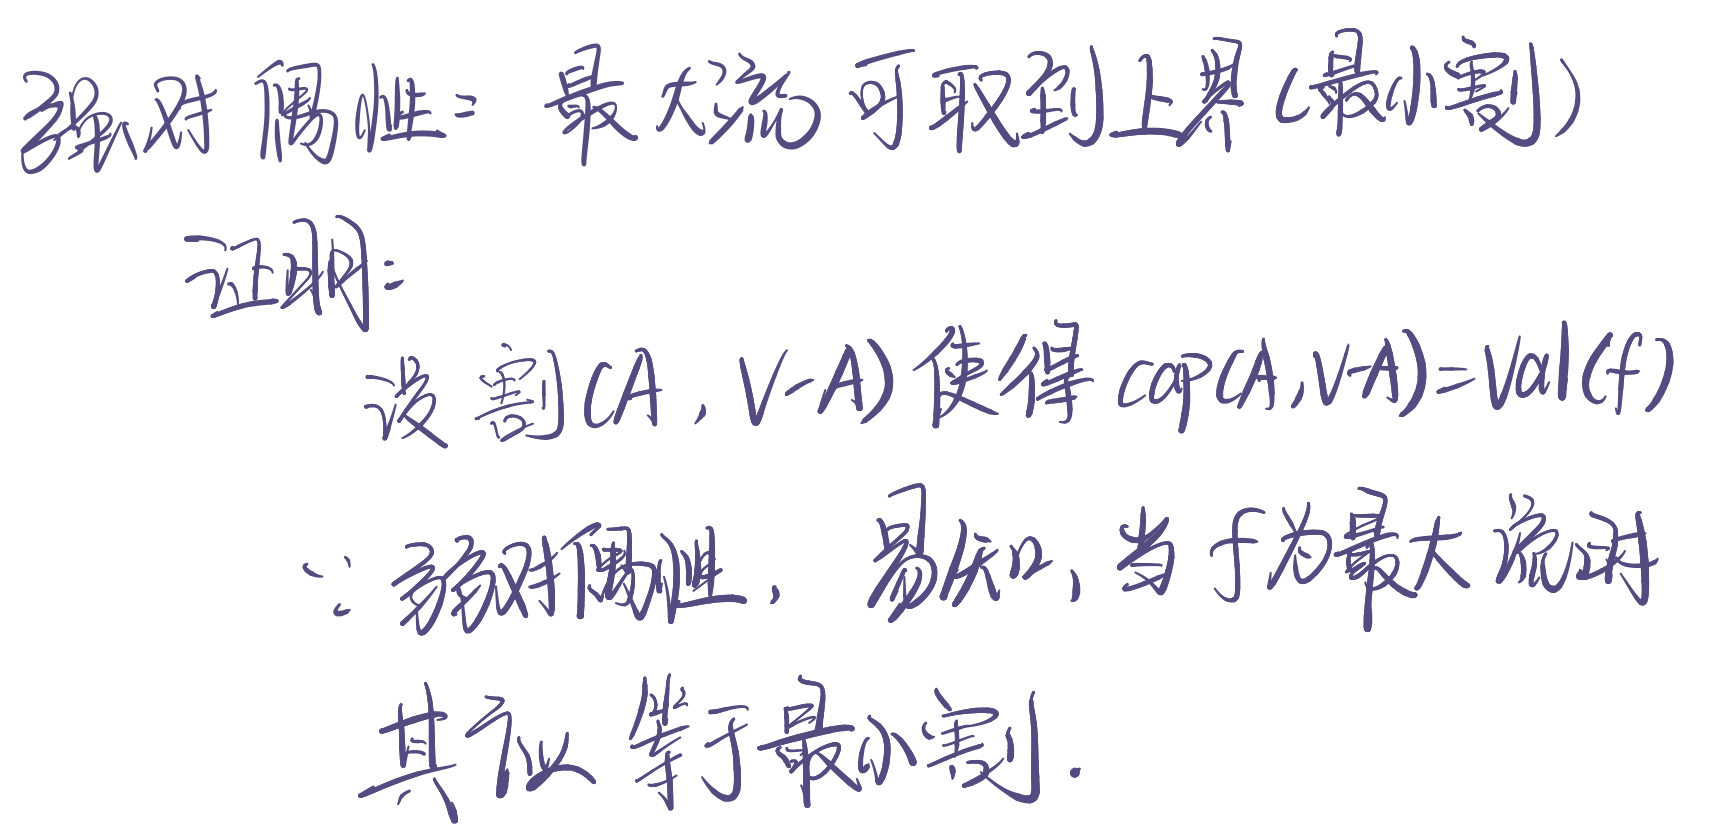 强对偶性：最大流可取到上界(最小割)
证明：
设割(A, V-A)使得cap(A,V-A)=Val(f)
∵弱对偶性, 易知, 当f为最大流时
其应等于最小割.